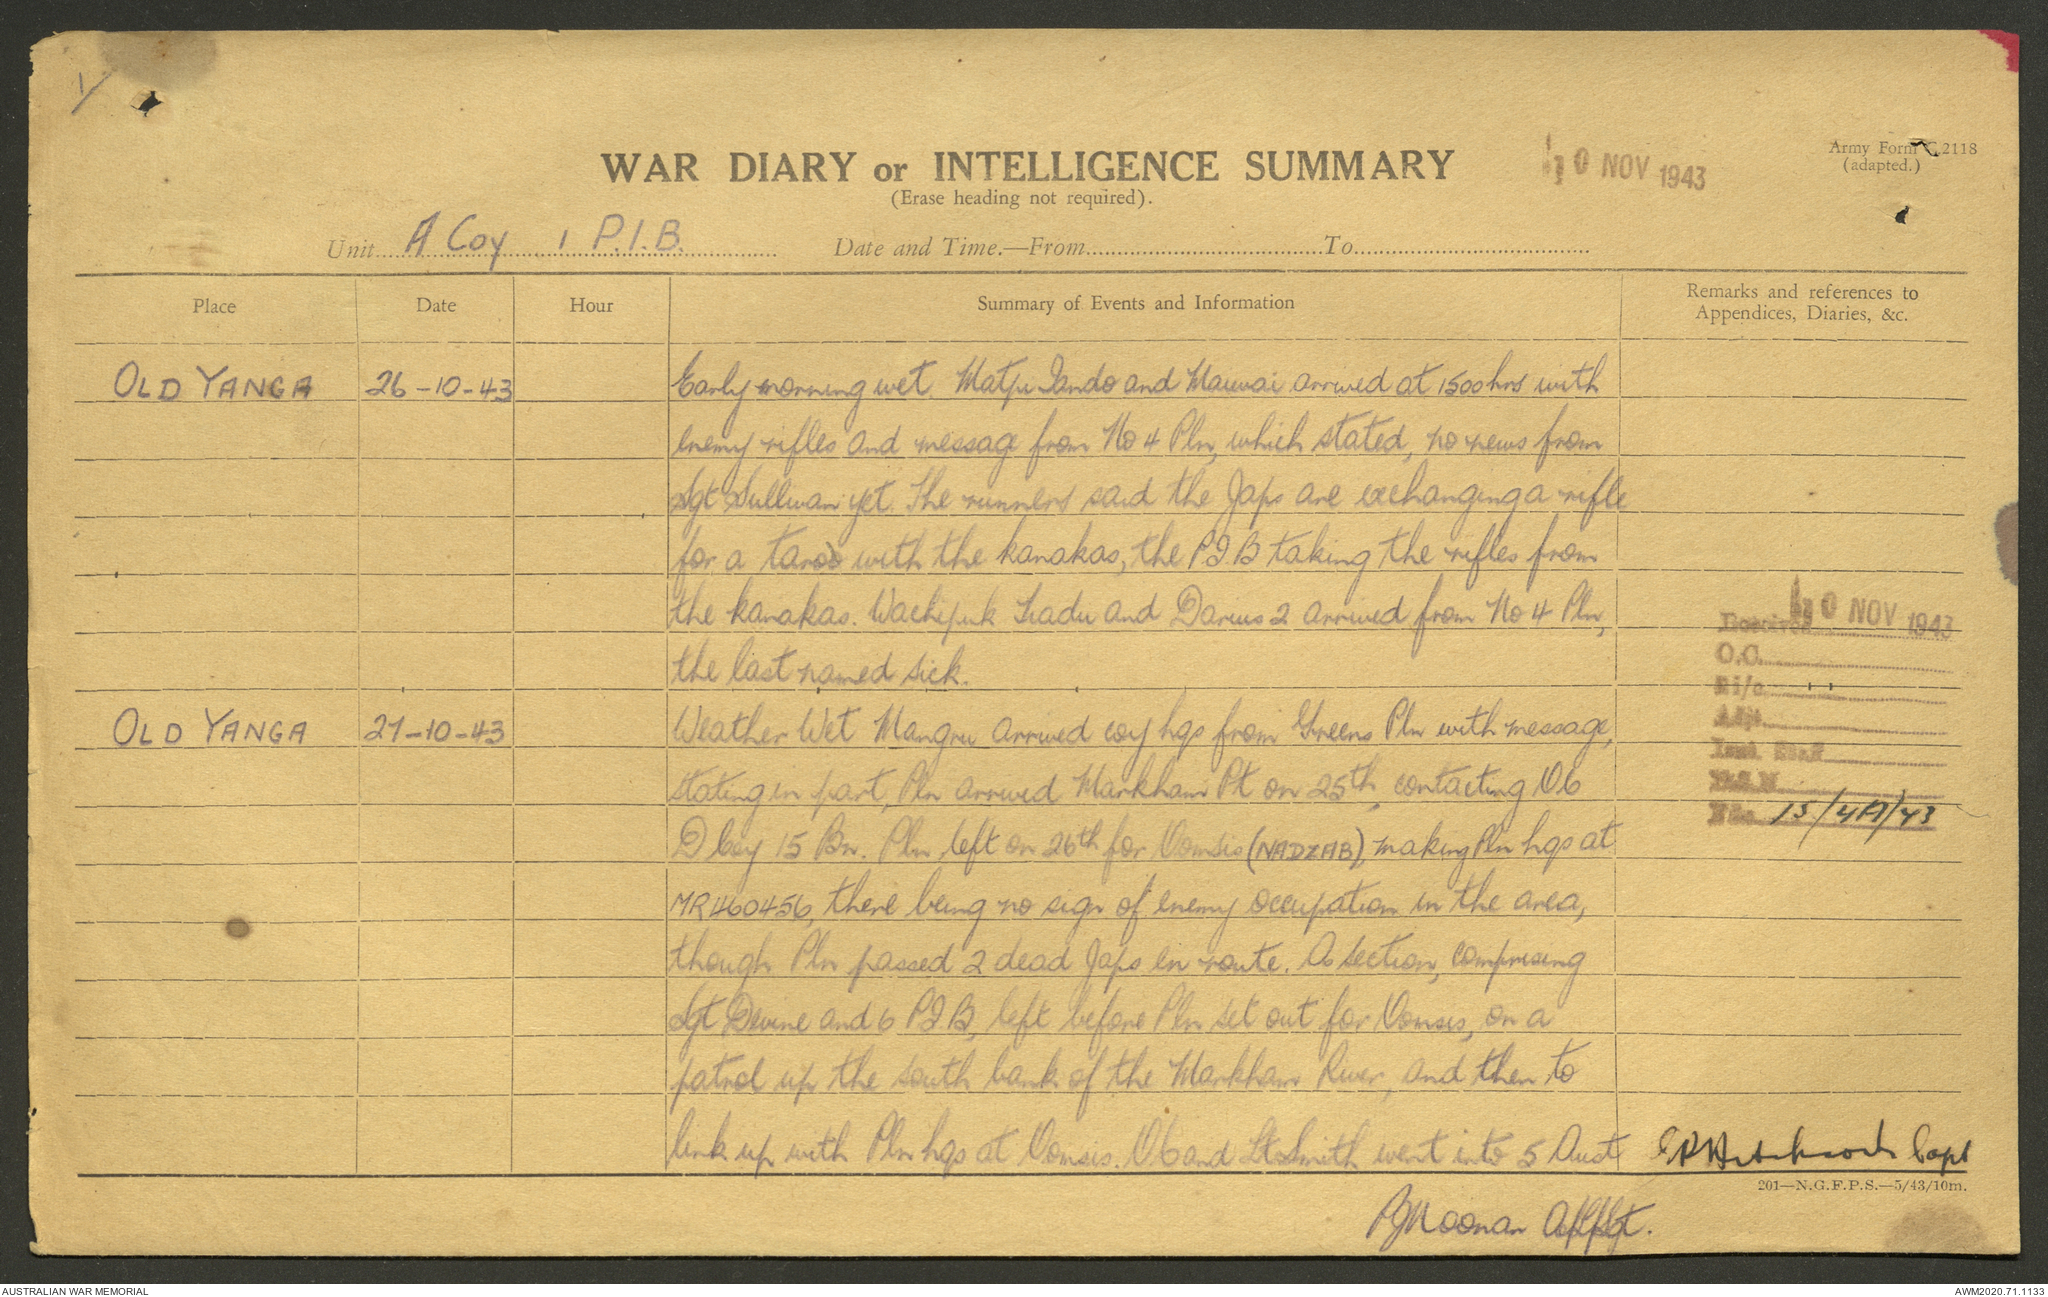 1
WAR DIARY or INTELLIGENCE SUMMARY
(Erase heading not required).
30 NOV 1943
Army Form C.2118
(adapted.)
Unit A Coy 1 P.I.B. Date and Time.—From To
Place Date Hour Summary of Events and Information Remarks and references to
Appendices, Diaries, &c.
OLD YANGA 26-10-43 Early morning wet. Matpi Iando and Mauvai arrived at 1500 hrs with
enemy rifles and message from No 4 Pln, which stated, no news from
Sgt Sullivan yet. The runners said the Japs are exchanging a rifle
for a taro with the kanakas, the PIB taking the rifles from
the kanakas. Wachipuk Liadu and Darius 2 arrived from No 4 Pln,
the last named sick.
OLD YANGA 27-10-43 Weather Wet Mangru arrived coy hqs from Greens Pln with message,
stating in part, Pln arrived Markham Pt on 25th, contacting OC
D Coy 15 Bn. Pln left on 26th for Oomsis (NADZAB), making Pln hqs at
MR460456, there being no sign of enemy occupation in the area,
though Pln passed 2 dead Japs en route. A section, comprising
Sgt Devine and 6 PIB, left before Pln set out for Oomsis, on a
patrol up the south bank of the Markham River, and then to
link up with Pln hqs at Oomsis. OC and Lt Smith went into 5 Aust
Received 30 NOV 1943
O.C.
2 i/c
Adjt.
File 15/4A/43
Hitchcock Capt
201—N.G.F.P.S.—5/43/10m.
Noonan
AUSTRALIAN WAR MEMORIAL
AWM2020.71.1133